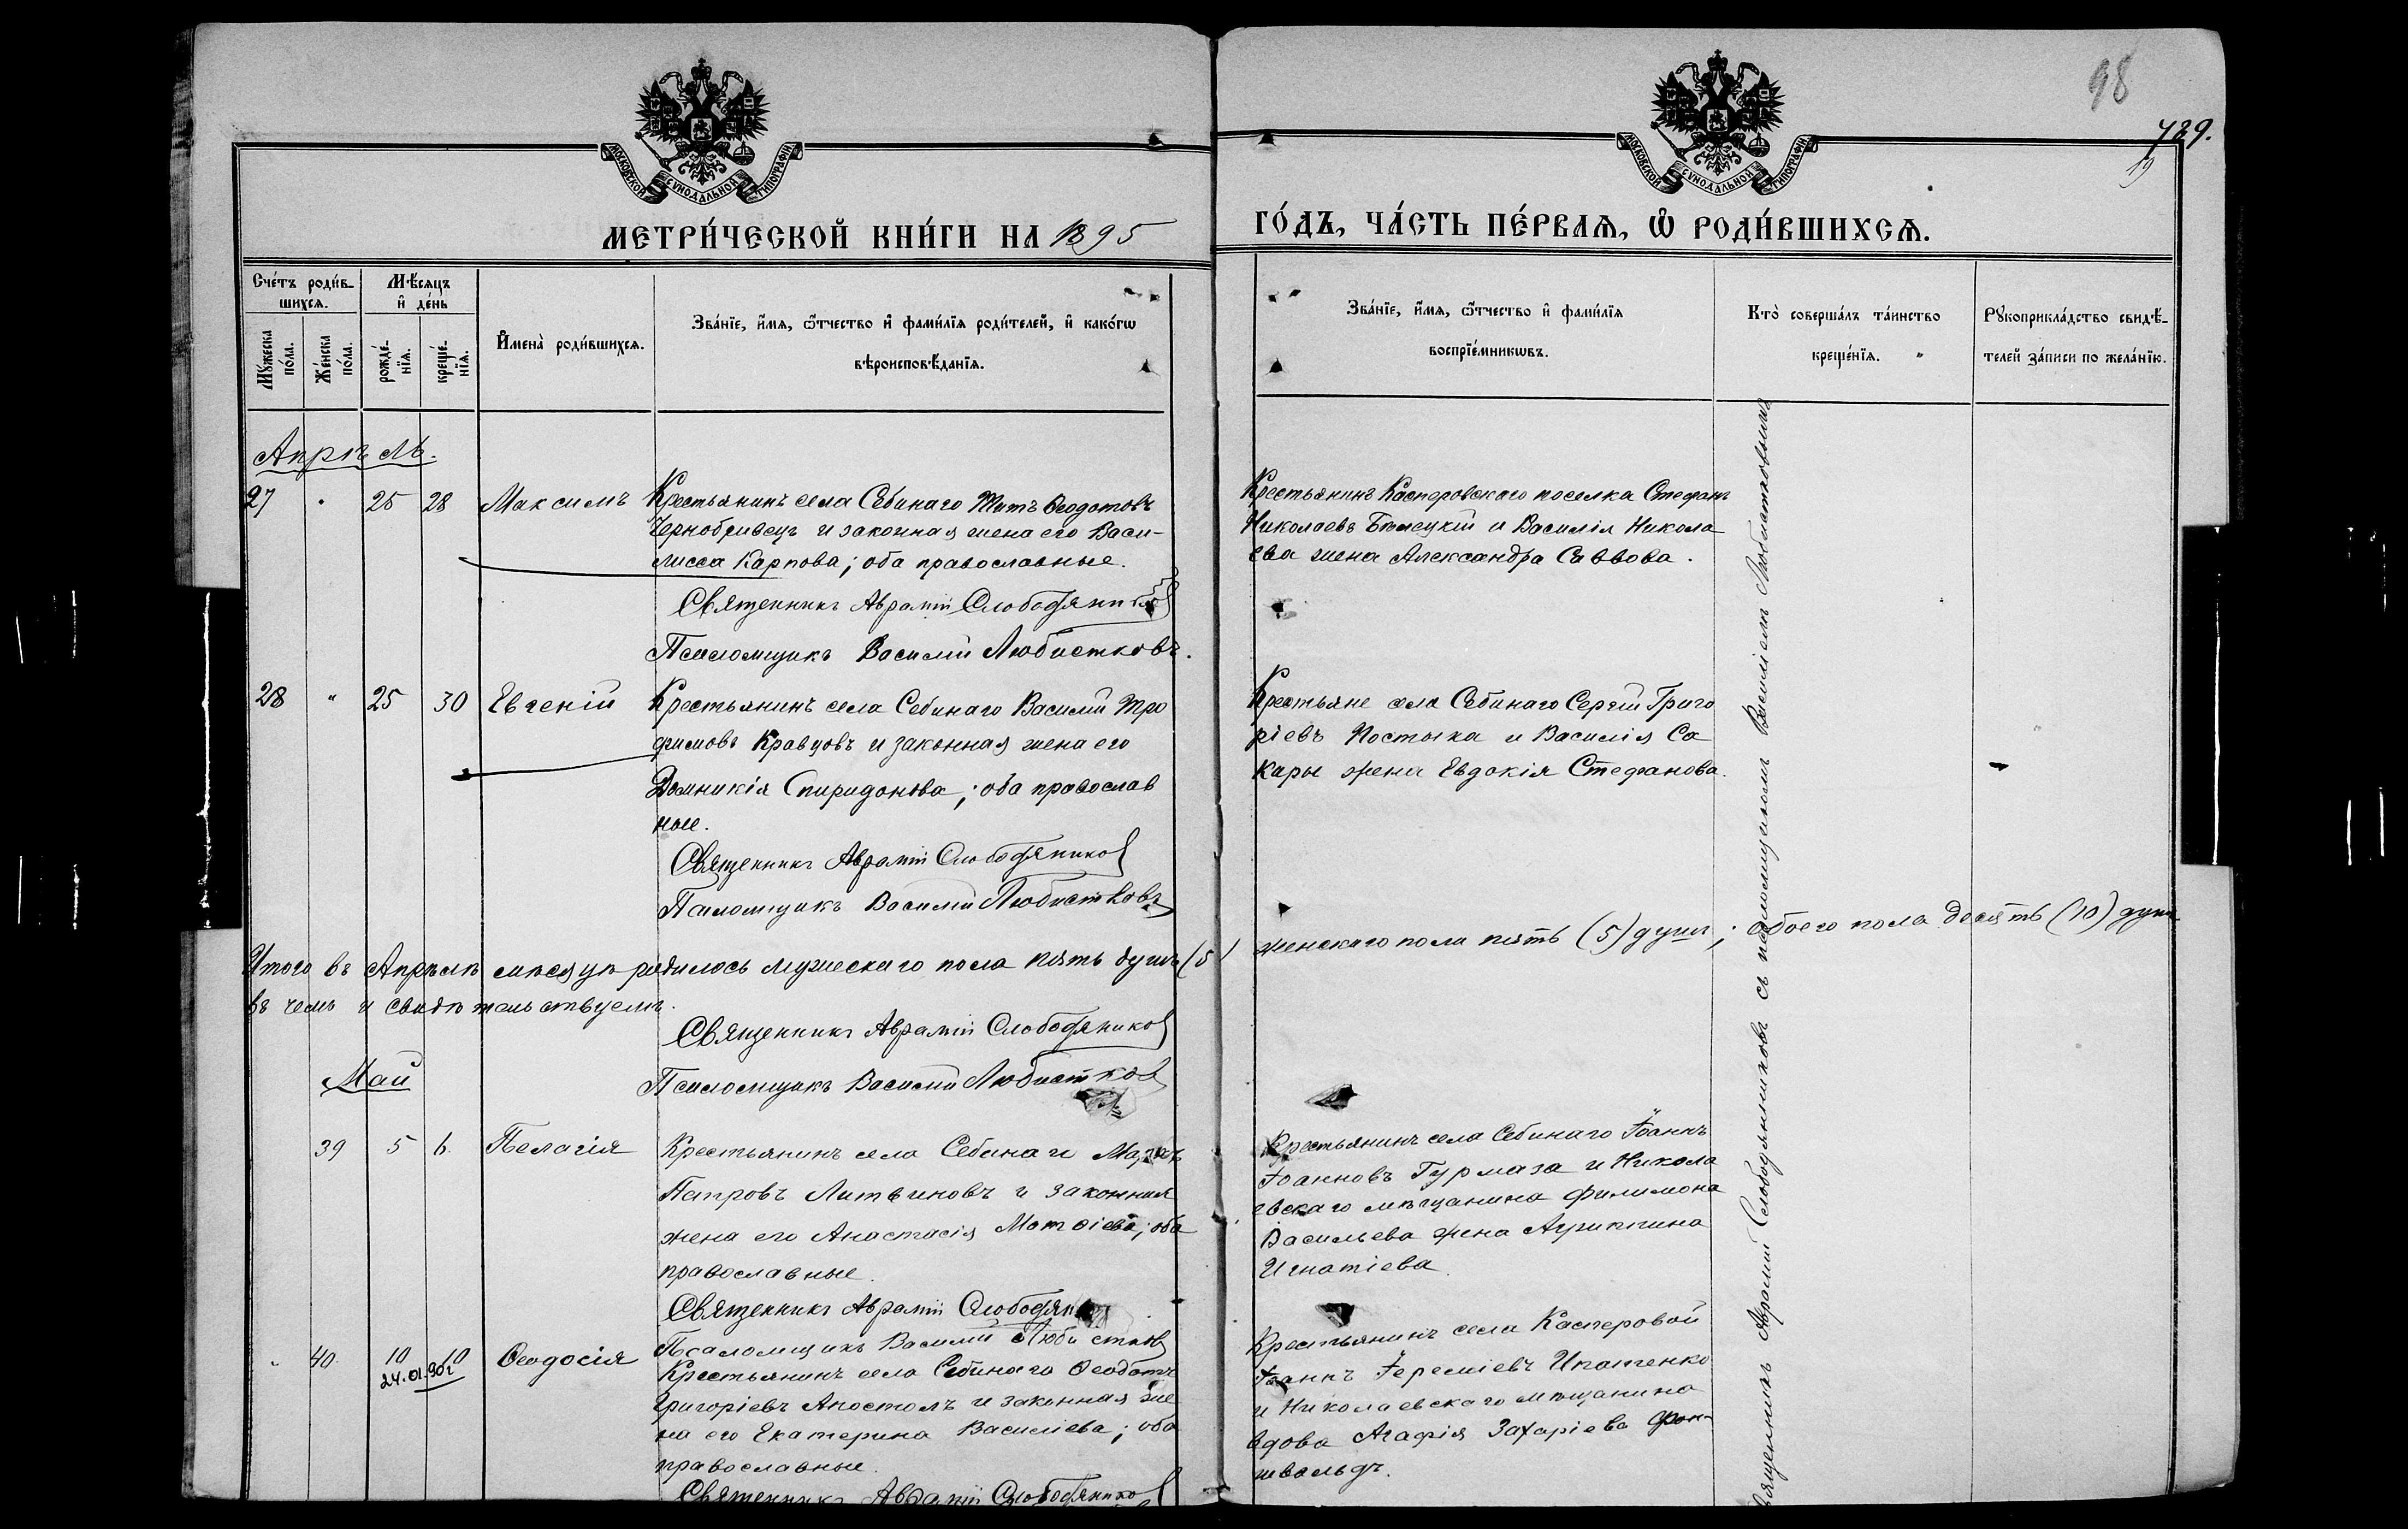 98
789.
19
МОСКОВСКОЙ СѴНОДАЛЬНОЙ ТИПОГРАФІИ
МОСКОВСКОЙ СѴНОДАЛЬНОЙ ТИПОГРАФІИ
МЕТРИ́ЧЕСКОЙ КНИ́ГИ НА 1895
ГО́ДЪ, ЧА́СТЬ ПЕ́РВАѦ, Ѡ҆ РОДИ́ВШИХСѦ.
Сче́тъ роди́в-
шихсѧ.
Мѣ́сѧцъ
и҆ де́нь
Мꙋ́жеска
по́ла.
Же́нска
по́ла.
рожде́-
нїѧ.
креще́-
нїѧ.
И҆мена̀ роди́вшихсѧ.
Зва́нїе, и҆́мѧ, ѻ҆́тчество и҆ фами́лїѧ роди́телей, и҆ како́гѡ
вѣроисповѣ́данїѧ.
Зва́нїе, и҆́мѧ, ѻ҆́тчество и҆ фами́лїѧ
воспрїе́мникѡвъ.
Кто̀ соверша́лъ та́инство
креще́нїѧ.
Рꙋкоприкла́дство свидѣ́-
телей за́писи по жела́нїю.
Апрѣль.
27 " 25 28 Максимъ
Крестьянинъ села Себинаго Титъ Ѳеодотовъ
Чернобривецъ и законная жена его Васи-
лисса Карпова; оба православные.
Священникъ Аврамій Слободяников
Псаломщикъ Василій Любистковъ.
Крестьянинъ Касперовскаго поселка Стефанъ
Николаевъ Билецкій и Василія Никола
ева жена Александра Саввова.
28 " 25 30 Евгеній
Крестьянинъ села Себинаго Василій Тро
фимовъ Кравцовъ и законная жена его
Домникія Спиридонова; оба православ
ные.
Священникъ Аврамій Слободяников
Псаломщикъ Василій Любистковъ
Крестьяне села Себинаго Сергій Григо
ріевъ Постыка и Василія Са
кары жена Евдокія Стефанова.
Итого въ Апрѣлѣ мѣсяцѣ родилось мужескаго пола пять душъ (5) женскаго пола пять (5) душъ; обоего пола десять (10) душъ
въ чемъ и свидѣтельствуемъ.
Священникъ Аврамій Слободяников
Псаломщикъ Василій Любистков
Май
39 5 6. Пелагія
Крестьянинъ села Себинаго
Петровъ Литвиновъ и законная
жена его Анастасія Матѳіева; оба
православные.
Священникъ Аврамій
Псаломщикъ Василій Любистков
Крестьянинъ села Себинаго Іоаннъ
Іоанновъ Гурмаза и Никола
евскаго мѣщанина Филимона
Васильева жена Агриппина
Игнатіева
" 40. 10 10 Ѳеодосія
24.01.90г
Крестьянинъ села Себинаго Ѳеодотъ
Григоріевъ Апостолъ и законная же
на его Екатерина Василіева; оба
православные.
Священникъ Аврамій Слободяников
Крестьянинъ села Касперовой
Іоаннъ Іереміевъ Ипатенко
и Николаевскаго мѣщанина
вдова Агафія Захаріева Фон-
швальдъ.
Священникъ Аврамій Слободянниковъ съ псаломщикомъ Василіемъ Любистковымъ